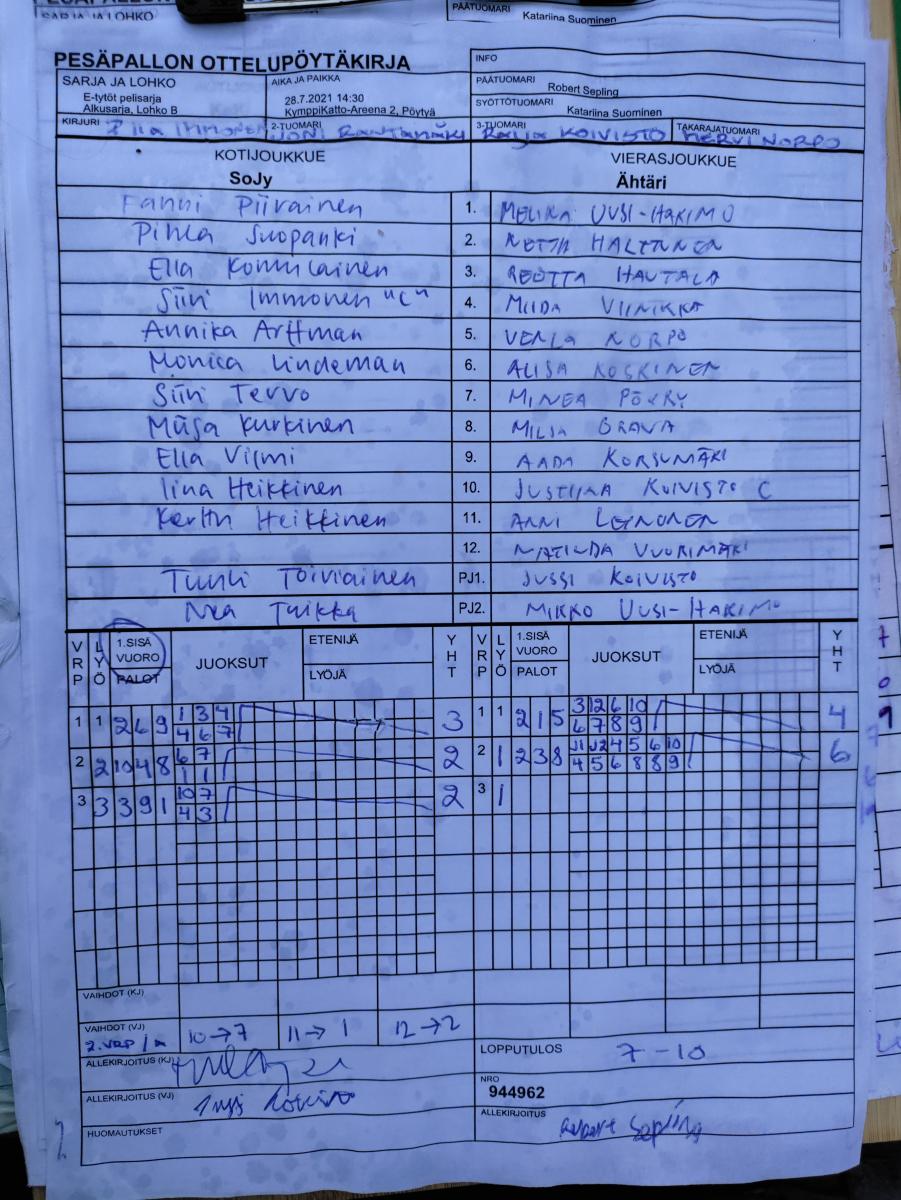 PÄÄTUOMARI
Katariina Suominen
SARJA JA LOHKO
PESÄPALLON OTTELUPÖYTÄKIRJA
INFO
SARJA JA LOHKO
E-tytöt pelisarja
Alkusarja, Lohko B
AIKA JA PAIKKA
28.7.2021 14:30
KymppiKatto-Areena 2, Pöytyä
PÄÄTUOMARI
Robert Sepling
SYÖTTÖTUOMARI
Katariina Suominen
KIRJURI Immonen 2-TUOMARI 3-TUOMARI Raija KOIVISTO TAKARAJATUOMARI MERVI NORPO
KOTIJOUKKUE
SoJy
VIERASJOUKKUE
Ähtäri
Fanni Piirainen 1. MELINA UUSI-HAKIMO
Pihla Suopanki 2. NETTA HALTUNEN
Ella Kommulainen 3. REETTA HAUTALA
Siiri Immonen "C" 4. MIIDA VIINIKKA
Annika Arffman 5. VENLA NORPO
Monica Lindeman 6. ALISA KOSKINEN
Siiri Tervo 7. MINEA PÖYRY
Miisa Kurkinen 8. MILJA
Ella Vilmi 9. AADA KORSUMÄKI
Iina Heikkinen 10. JUSTIINA KOIVISTO C
Kerttu Heikkinen 11. ANNI LEINONEN
12. MATILDA VUORIMÄKI
Tuuli Toiviainen PJ1. JUSSI KOIVISTO
Nea Tuikka PJ2. MIKKO UUSI-HAKIMO
VRP LYÖ 1.SISÄ VUORO PALOT JUOKSUT ETENIJÄ LYÖJÄ YHT
VRP LYÖ 1.SISÄ VUORO PALOT JUOKSUT ETENIJÄ LYÖJÄ YHT
1 1 2 6 9 1 3 4 3 1 1 2 1 5 3 12 6 10 4
4 6 7 6 7 8 9
2 2 10 4 8 6 7 2 2 1 2 3 8 11 12 4 5 6 10 6
1 1 4 5 6 8 8 9
3 3 3 9 1 10 7 2 3 1
4 3
VAIHDOT (KJ)
VAIHDOT (VJ)
2. VRP 10→7 11→1 12→2
ALLEKIRJOITUS (KJ)
LOPPUTULOS 7-10
ALLEKIRJOITUS (VJ) Jussi Koivisto
NRO
944962
HUOMAUTUKSET
ALLEKIRJOITUS
Robert Sepling